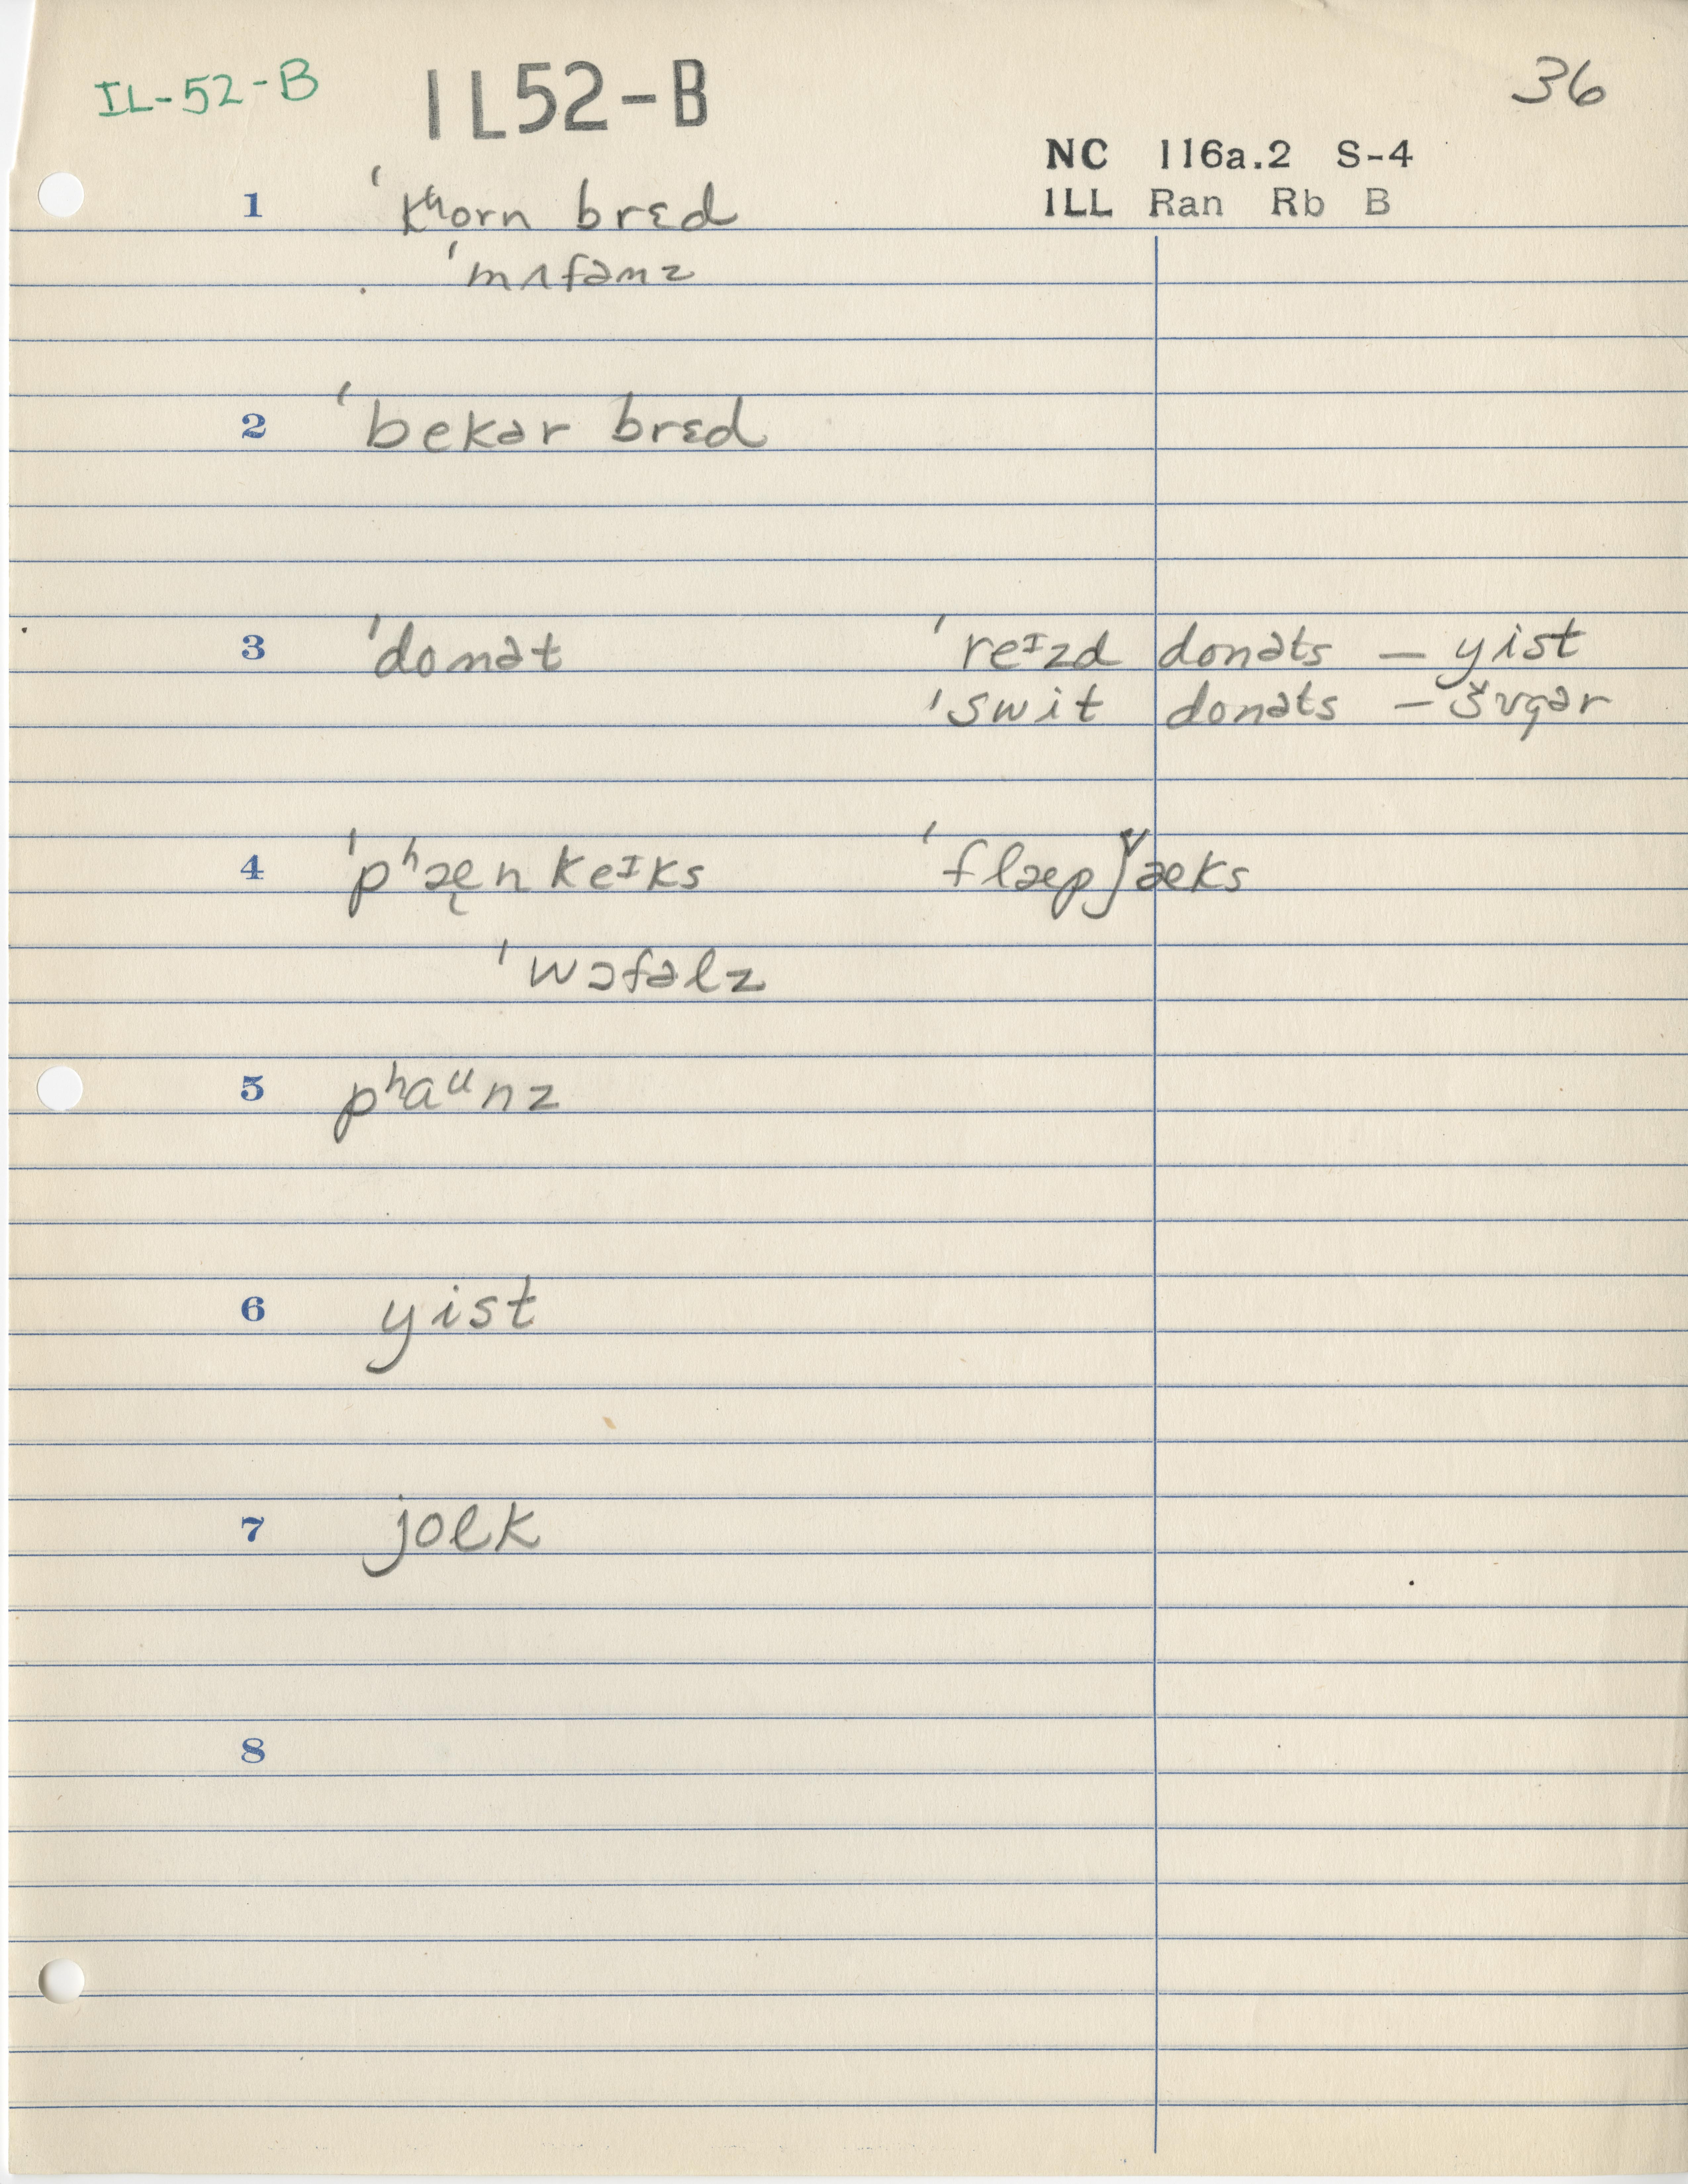 IL-52-B IL52-B 36
NC 116a.2 S-4
1 ˈkʰorn brɛd ILL Ran Rb B
ˈmʌfənz
2 ˈbekər brɛd
3 ˈdonət ˈreᶦzd donəts – yist
ˈswit donəts – šʊgər
4 ˈpʰæ̨n keᶦks ˈflæpǰæks
ˈwɔfəlz
5 pʰaᵘnz
6 yist
7 jolk
8